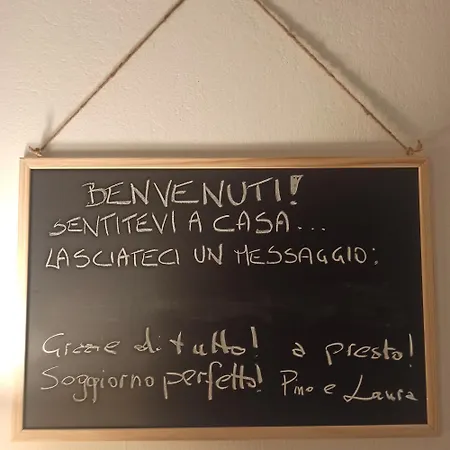 BENVENUTI!
SENTITEVI A CASA...
LASCIATECI UN MESSAGGIO:
Grazie di tutto! a presto!
Soggiorno perfetto! Pino e Laura